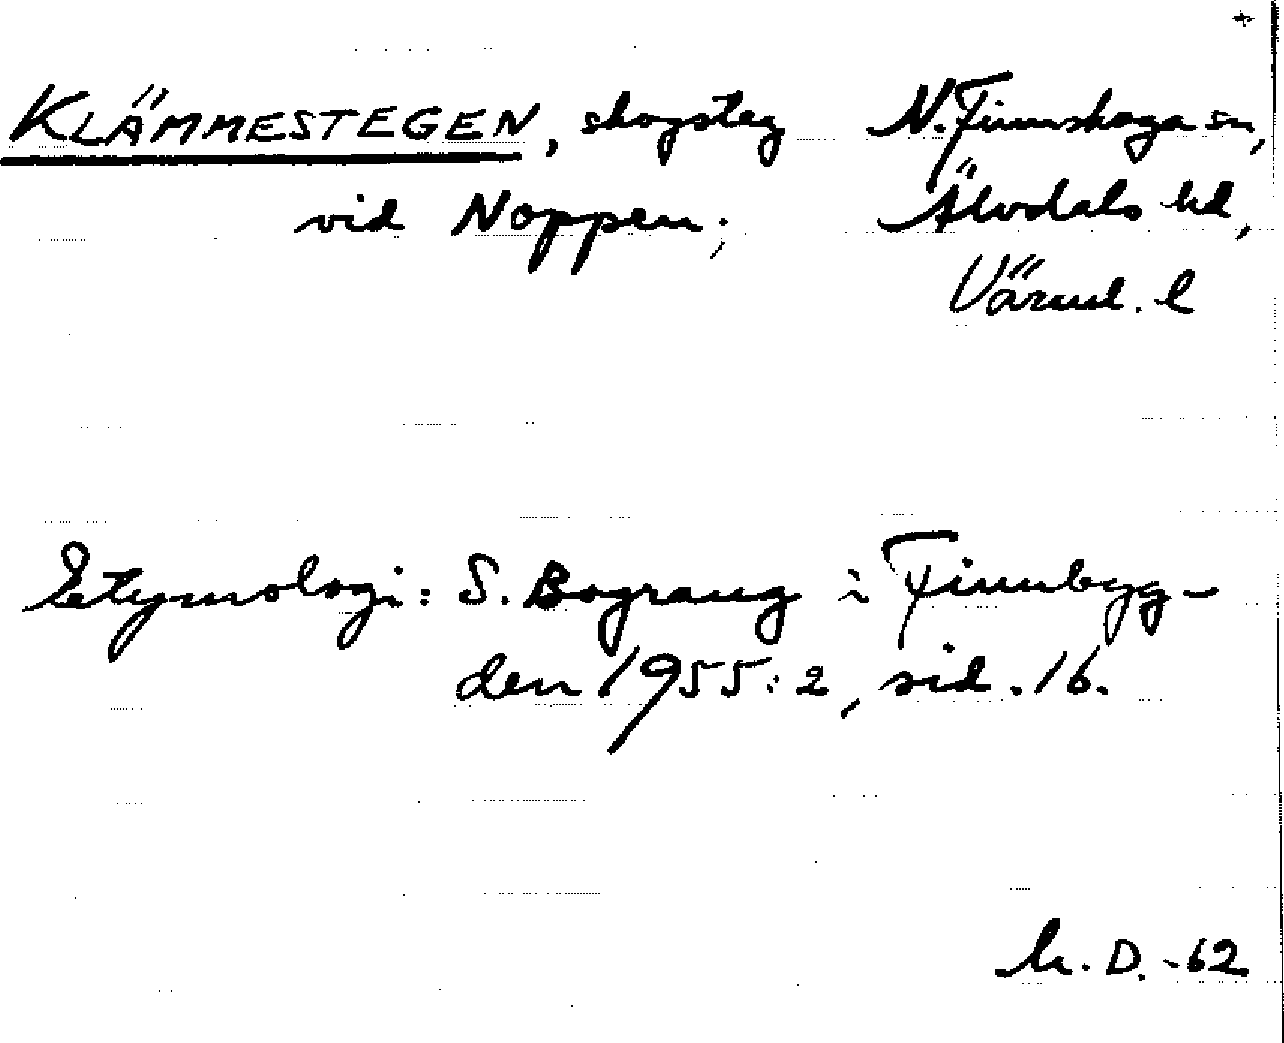 +
KLÄMMESTEGEN, skogsteg N. Finnskoga sn,
vid Noppen; Älvdals hd,
Värml. l
Etymologi: S. Bograng i Finnbyg-
den 1955:2, sid. 16.
h. D. -62